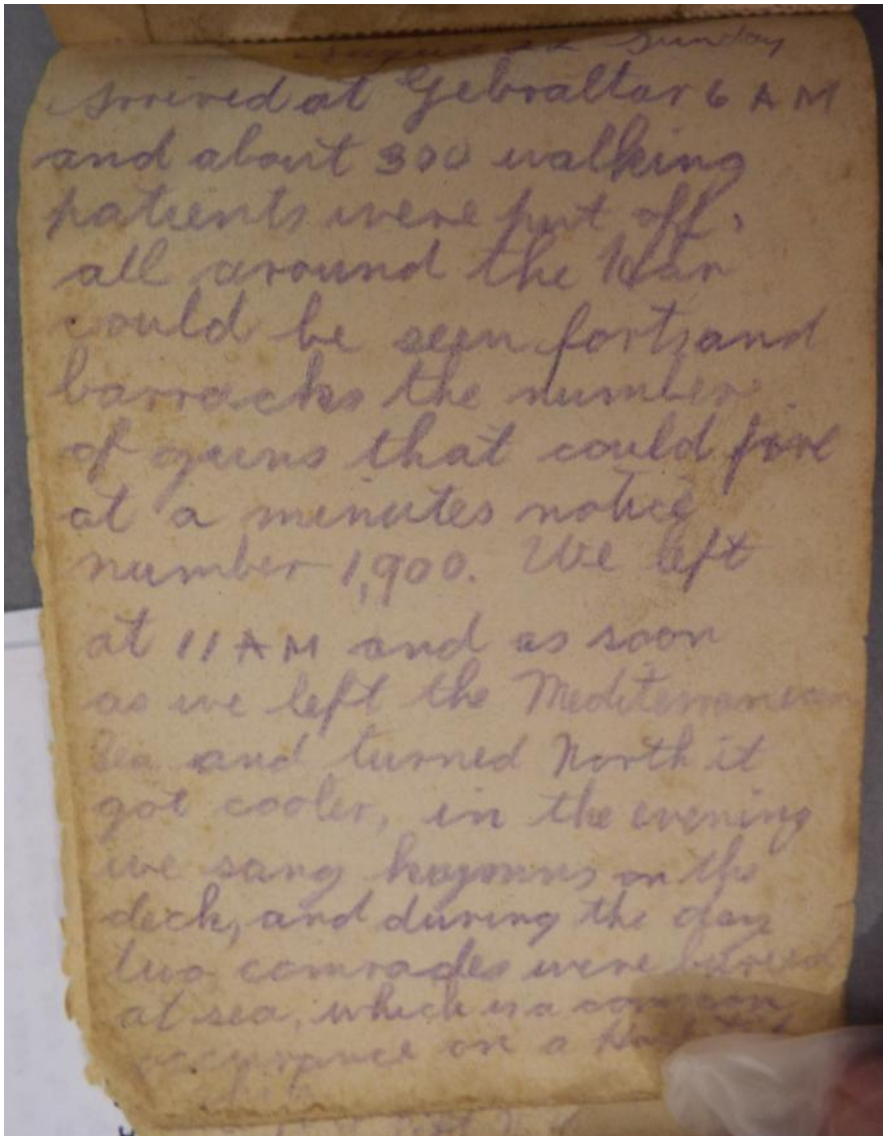 August 22 Sunday
Arrived at Gebraltar 6 AM
and about 300 walking
patients were put off,
all around the
could be seen forts and
barracks the number
of guns that could fire
at a minutes notice
number 1,900. We left
at 11 AM and as soon
as we left the Mediterranean
Sea and turned North it
got cooler, in the evening
we sang hymns on the
deck, and during the day
two comrades were buried
at sea, which is a common
occurance on a